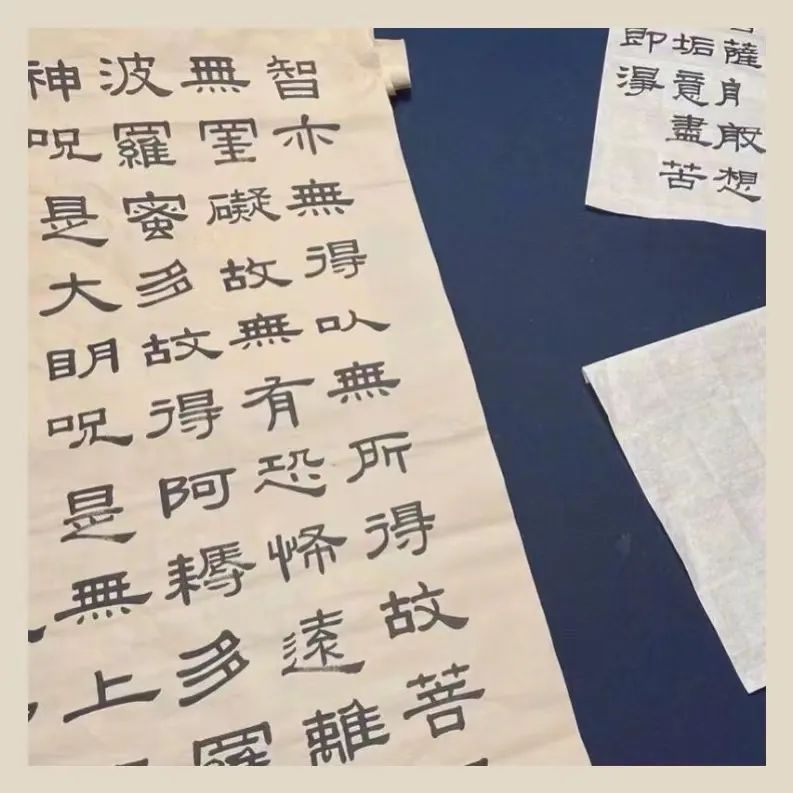 薩想
垢意盡苦
即淂
智亦無得以無所得故菩
無罣礙故無有恐怖遠離
波羅蜜多故得阿耨多羅
神呪是大明呪是無上